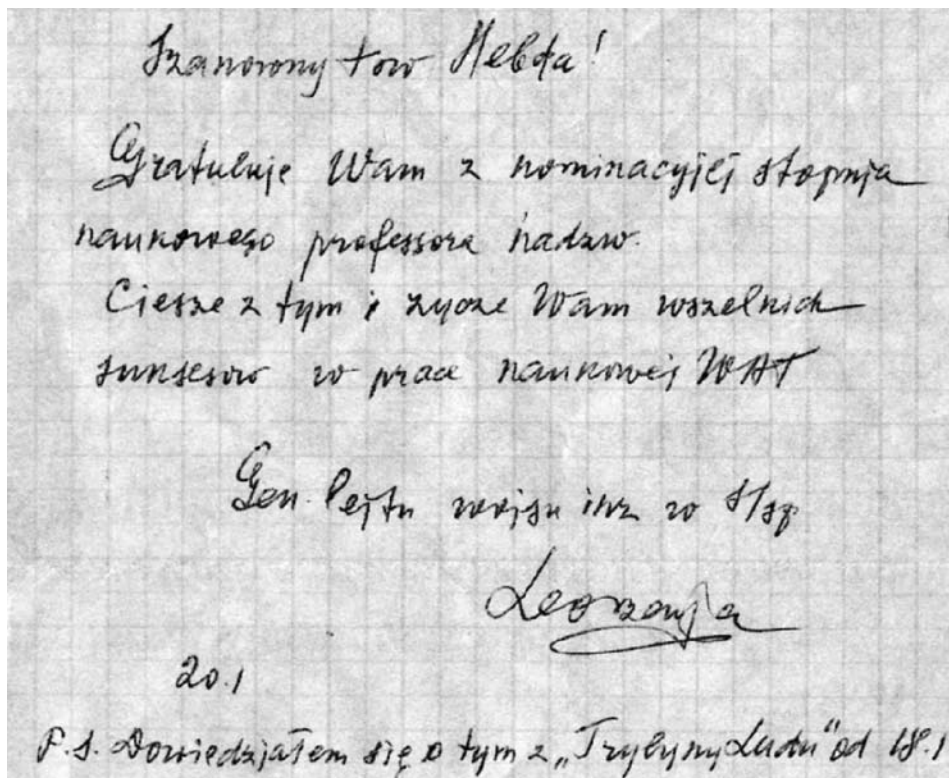 Szanowny tow Hebda!
Gratuluje Wam z nominacyjej stopnja
naukowego professora nadzw.
Ciesze z tym i zycze Wam wszelkich
suksesow w prace naukowej WAT
Gen. lejtn wojsk inz w S/sp
20.1
P.S. Dowiedziałem się o tym z „Trybyny Ludu" od 18.1